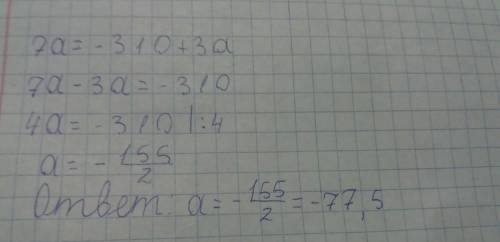 7a = -310 + 3a
7a - 3a = -310
4a = -310 |:4
a = - 155/2
Ответ: a = - 155/2 = -77,5